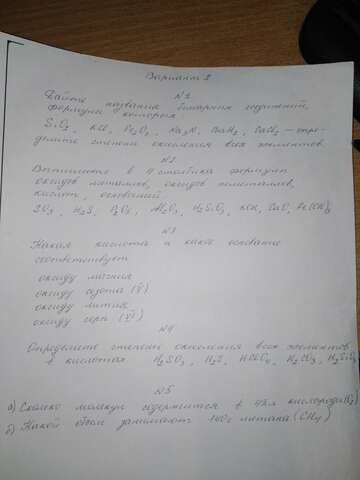 Вариант 2
N1
Дайте названия бинарных соединений,
формулы которых
SiO2, KCl, Fe2O3, Na3N, BaH2, CaCl2 – опре-
делите степени окисления всех элементов.
N2
Выпишите в 4 столбика формулы
оксидов металлов, оксидов неметаллов,
кислот, оснований
SO3, H2S, P2O5, Al2O3, H2SiO3, KOH, CaO, Fe(OH)3
N3
Какая кислота и какое основание
соответствует
оксиду магния
оксиду азота (V)
оксиду лития
оксиду серы (VI)
N4
Определите степень окисления всех элементов
в кислотах H2SO3, H2S, HClO4, H2CO3, H2SiO3
N5
а) Сколько молекул содержится в кислорода (O2)
б) Какой объем занимают 140г метана (CH4)